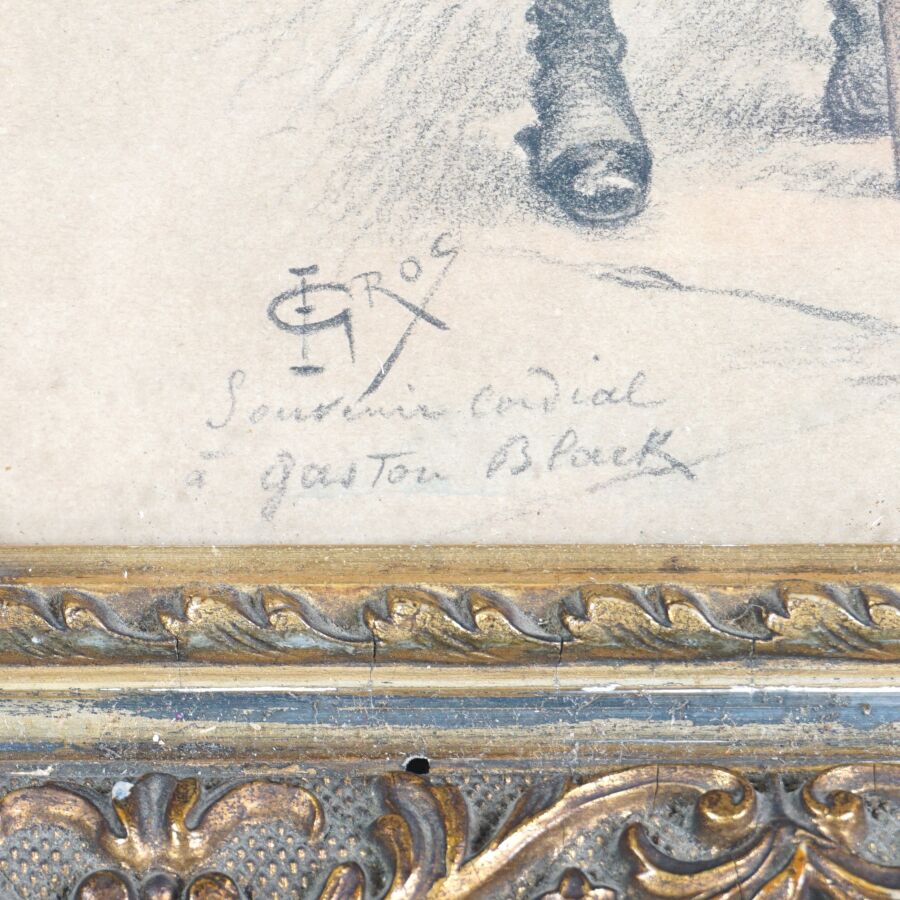 GROS
Souvenir cordial
à gaston Black